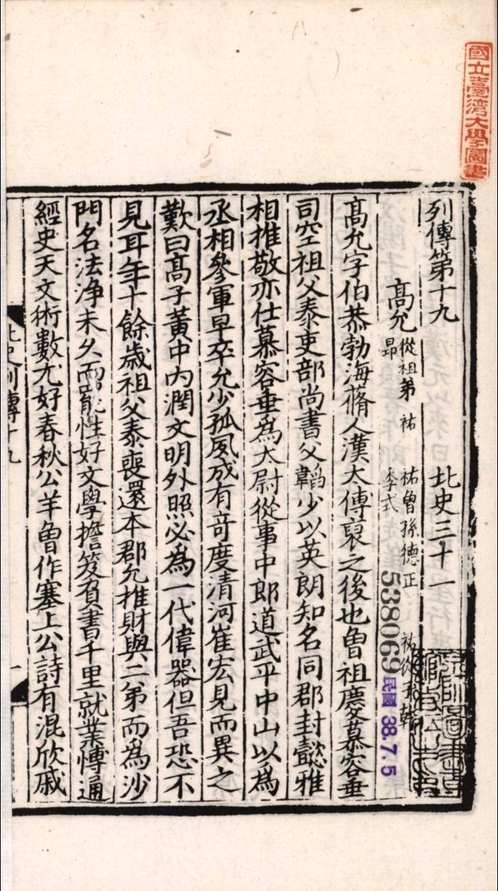 國立臺灣大學圖書
列傳第十九 北史三十一
高允 從祖弟祐 祐曾孫德正 祐從子乾
昂 季式
538069 民國 38.7.5
高允字伯恭勃海脩人漢太傅裒之後也曾祖慶慕容垂
司空祖父泰吏部尚書父韜少以英朗知名同郡封懿雅
相推敬亦仕慕容垂為太尉從事中郎道武平中山以為
丞相參軍早卒允少孤夙成有奇度清河崔宏見而異之
歎曰高子黃中內潤文明外照必為一代偉器但吾恐不
見耳年十餘歲祖父泰喪還本郡允推財與二弟而為沙
門名法淨未久而罷性好文學擔笈負書千里就業博通
經史天文術數尤好春秋公羊曾作塞上公詩有混欣戚
北史列傳十九
一